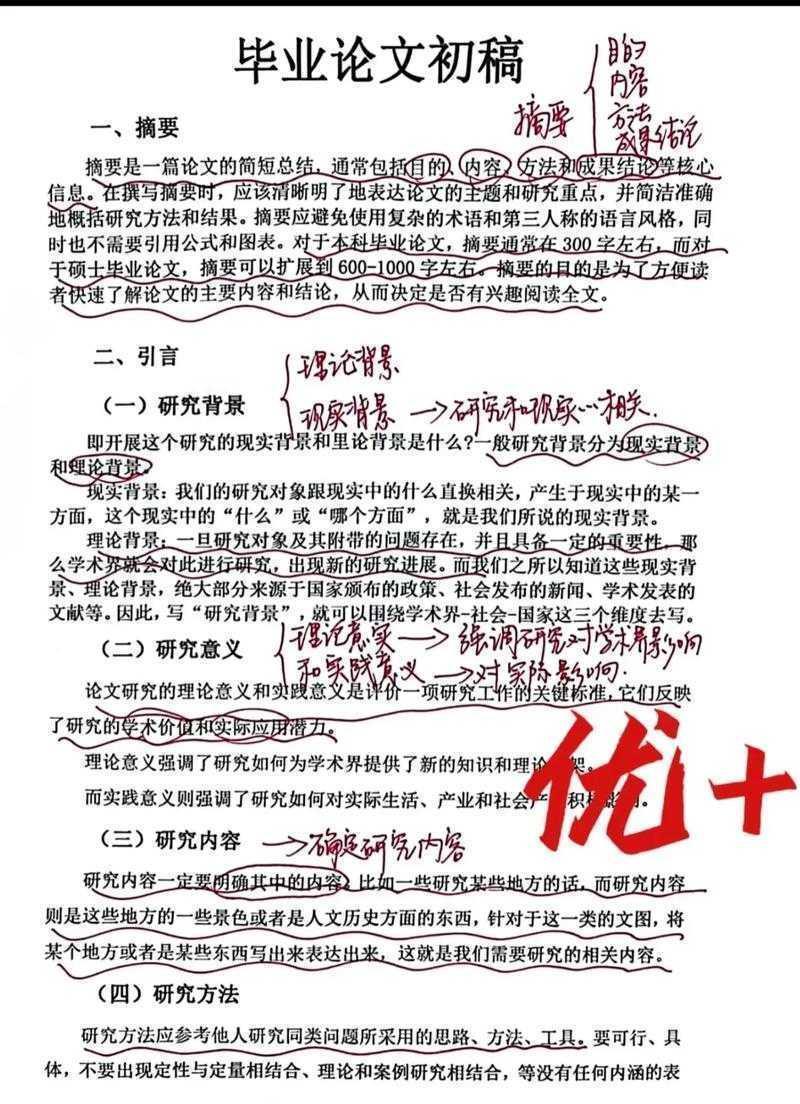 毕业论文初稿
目的
内容
摘要 方法
成果结论
一、摘要
摘要是一篇论文的简短总结，通常包括目的、内容、方法和成果结论等核心
信息。在撰写摘要时，应该清晰明了地表达论文的主题和研究重点，并简洁准确
地概括研究方法和结果。摘要应避免使用复杂的术语和第三人称的语言风格，同
时也不需要引用公式和图表。对于本科毕业论文，摘要通常在 300 字左右，而对
于硕士毕业论文，摘要可以扩展到 600-1000 字左右。摘要的目的是为了方便读
者快速了解论文的主要内容和结论，从而决定是否有兴趣阅读全文。
二、引言
理论背景
（一）研究背景
现实背景→研究和现实…相关.
即开展这个研究的现实背景和里论背景是什么？一般研究背景分为现实背景
和理论背景。
现实背景：我们的研究对象跟现实中的什么直换相关，产生于现实中的某一
方面，这个现实中的“什么”或“哪个方面”，就是我们所说的现实背景。
理论背景：一旦研究对象及其附带的问题存在，并且具备一定的重要性，那
么学术界就会对此进行研究，出现新的研究进展。而我们之所以知道这些现实背
景、理论背景，绝大部分来源于国家颁布的政策、社会发布的新闻、学术发表的
文献等。因此，写“研究背景”，就可以围绕学术界-社会-国家这三个维度去写。
理论意实→强调研究对学术界影响
（二）研究意义
和实践意义→对实际影响.
论文研究的理论意义和实践意义是评价一项研究工作的关键标准，它们反映
了研究的学术价值和实际应用潜力。
理论意义强调了研究如何为学术界提供了新的知识和理论 架。
而实践意义则强调了研究如何对实际生活、产业和社会产 积极影响。
优+
（三）研究内容 →确定研究内容
研究内容一定要明确其中的内容，比如一些研究某些地方的话，而研究内容
则是这些地方的一些景色或者是人文历史方面的东西，针对于这一类的文图，将
某个地方或者是某些东西写出来表达出来，这就是我们需要研究的相关内容。
（四）研究方法
研究方法应参考他人研究同类问题所采用的思路、方法、工具。要可行、具
体，不要出现定性与定量相结合、理论和案例研究相结合，等没有任何内涵的表